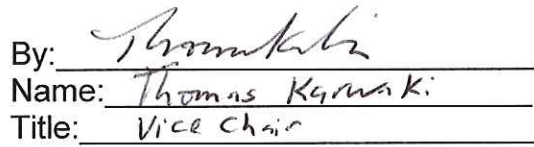 By:
Name: Thomas Karwaki
Title: Vice Chair